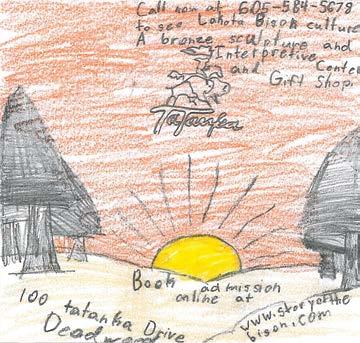 Call now at 605-584-5678
to see Lakota Bison culture
A bronze sculpture and
Interpretive
Center
and
Gift Shop.
Tatanka
Book admission
online at
www.storyofthe
bison.com
100 tatanka Drive
Deadwood